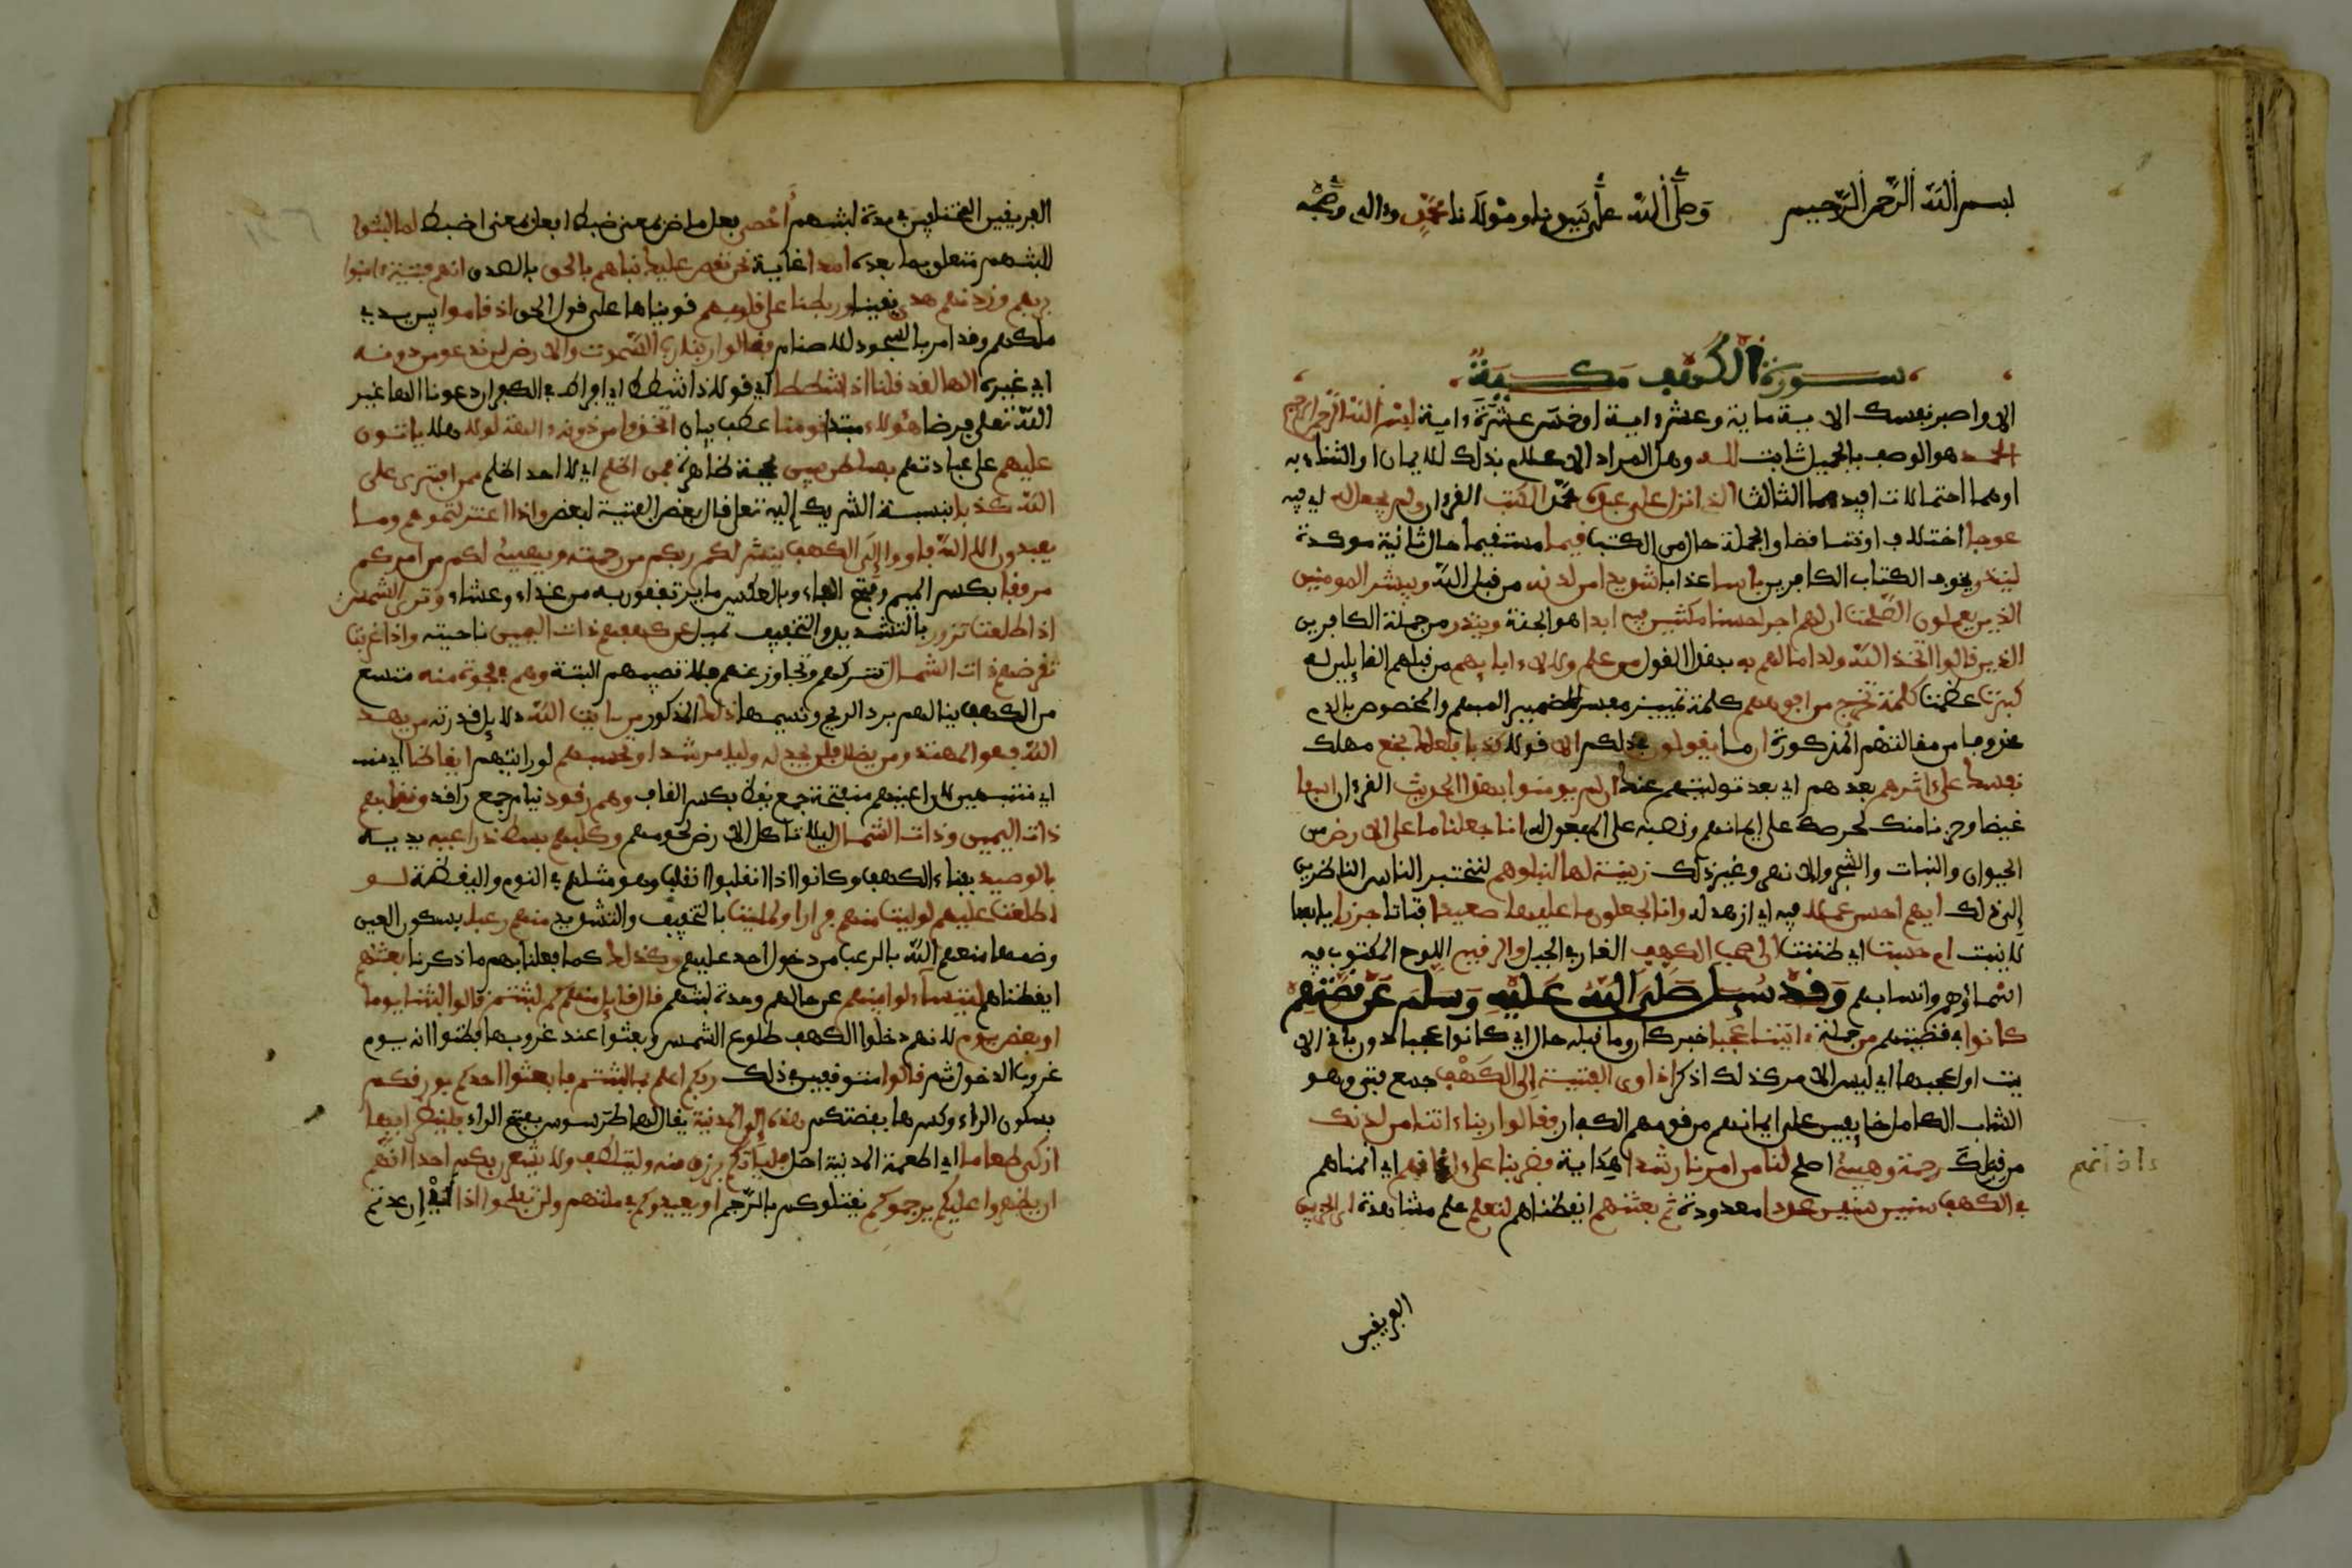 بسم الله الرحمن الرحيم وصلى الله على نبينا ومولانا محمد وءاله وصحبه
سورة الكهف مكية
الا واصبر نفسك الاية ماية وعشر ءاية او خمس عشرة ءاية بسم الله الرحمن الرحيم
الحمد هو الوصف بالجميل ثابت لله وهل المراد الاعلام بذلك للايمان او الثناء به
او هما احتمالات افيدها الثالث الذي انزل على عبده محمد الكتب القرءان ولم يجعل له اي فيه
عوجا اختلافا وتناقضا والجملة حال من الكتب قيما مستقيما حال ثانية موكدة
لينذر يخوف الكتاب الكافرين باسا عذابا شديدا من لدنه من قبل الله ويبشر المومنين
الذين يعملون الصلحت ان لهم اجرا حسنا مكثين فيه ابدا هو الجنة وينذر من جملة الكافرين
الذين قالوا اتخذ الله ولدا ما لهم به بهذا القول من علم ولا لاءابايهم من قبلهم القايلين له
كبرت عظمت كلمة تخرج من افوههم كلمة تمييز مفسر للضمير المبهم والمخصوص بالذم
محذوف اي مقالتهم المذكورة ان ما يقولون في ذلك الا قولا كذبا فلعلك بخع مهلك
نفسك على اثرهم بعدهم اي بعد توليتهم عنك ان لم يومنوا بهذا الحديث القرءان اسفا
غيضا وحزنا منك لحرصك على ايمانهم ونصبه على المفعول له انا جعلنا ما على الارض من
الحيوان والنبات والشجر والانهر وغير ذلك زينة لها لنبلوهم لنختبر الناس الناظرين
الى ذلك ايهم احسن عملا فيه اي ازهد له وانا لجعلون ما عليها صعيدا فتاتا جرزا يابسا
لا ينبت ام حسبت اي ظننت ان اصحب الكهف الغار في الجبل والرقيم اللوح المكتوب فيه
اسماؤهم وانسابهم وقد سيل صلى الله عليه وسلم عن قصتهم
كانوا في قصتهم من جملة ءايتنا عجبا خبر كان وما قبله حال اي كانوا عجبا دون باقي الا
يت او اعجبها اي ليس الامر كذلك اذكر اذ اوى الفتية الى الكهف جمع فتى وهو
الشاب الكامل خايفين على ايمانهم من قومهم الكفار فقالوا ربنا ءاتنا من لدنك
من قبلك رحمة وهيئ اصلح لنا من امرنا رشدا هداية فضربنا على ءاذانهم اي انمناهم
في الكهف سنين سنين عددا معدودة ثم بعثنهم ايقظناهم لنعلم علم مشاهدة اي الحزبين
ءاذانهم
الفريقين
الفريقين المختلفين في مدة لبثهم أحصى فعل ماض بمعنى ضبط افعل بمعنى اضبط لما لبثوا
للبثهم متعلق بما بعده امدا غاية نحن نقص عليك نباهم بالحق بالصدق انهم فتية ءامنوا
بربهم وزدنهم هدى يقينا وربطنا على قلوبهم قويناها على قول الحق اذ قاموا بين يدي
ملكهم وقد امر بالسجود للاصنام فقالوا ربنا رب السموت والارض لن ندعو من دونه
اي غيره الها لقد قلنا اذا شططا اي قولا ذا شطط اي افراط في الكفر ان دعونا الها غير
الله تعلى فرضا هؤلاء مبتدا قومنا عطف بيان اتخذوا من دونه ءالهة لولا هلا ياتون
عليهم على عبادتهم بسلطن بين بحجة ظاهرة فمن اظلم اي لا احد اظلم ممن افترى على
الله كذبا بنسبة الشريك إليه تعلى قال بعض الفتية لبعض واذا اعتزلتموهم وما
يعبدون الا الله فاووا إلى الكهف ينشر لكم ربكم من رحمته ويهيئ لكم من امركم
مرفقا بكسر الميم وفتح الفاء وبالعكس ما ترتفقون به من غداء وعشاء وترى الشمس
اذا طلعت تزور بالتشديد والتخفيف تميل عن كهفهم ذات اليمين ناحيته واذا غربت
تقرضهم ذات الشمال تتركهم وتجاوز عنهم فلا تصيبهم البتة وهم في فجوة منه متسع
من الكهف ينالهم برد الريح ونسيمها ذلك المذكور من ءايت الله دلايل قدرته من يهد
الله فهو المهتد ومن يضلل فلن تجد له وليا مرشدا وتحسبهم لو رايتهم ايقاظا اي منت
اي منتبهين لان اعينهم منفتحة جمع يقظ بكسر القاف وهم رقود نيام جمع راقد ونقلبهم
ذات اليمين وذات الشمال ليلا تاكل الارض لحومهم وكلبهم بسط ذراعيه يديه
بالوصيد بفناء الكهف وكانوا اذا انقلبوا انقلب وهو مثلهم في النوم واليقظة لو
اطلعت عليهم لوليت منهم فرارا ولملئت بالتخفيف والتشديد منهم رعبا بسكون العين
وضمها منعهم الله بالرعب من دخول احد عليهم وكذلك كما فعلنا بهم ما ذكرنا بعثنهم
ايقظناهم ليتساءلوا بينهم عن حالهم ومدة لبثهم قال قايل منهم كم لبثتم قالوا لبثنا يوما
او بعض يوم لانهم دخلوا الكهف طلوع الشمس وبعثوا عند غروبها فظنوا انه يوم
غروب الدخول ثم قالوا متوقفين في ذلك ربكم اعلم بما لبثتم فابعثوا احدكم بورقكم
بسكون الراء وكسرها بفضتكم هذه إلى المدينة يقال لها طرسوس بفتح الراء فلينظر ايها
ازكى طعاما اي اطعمة المدينة احل فلياتكم برزق منه وليتلطف ولا يشعرن بكم احدا انهم
ان يظهروا عليكم يرجموكم يقتلوكم بالرجم او يعيدوكم في ملتهم ولن تفلحوا اذا اي إن عدتم